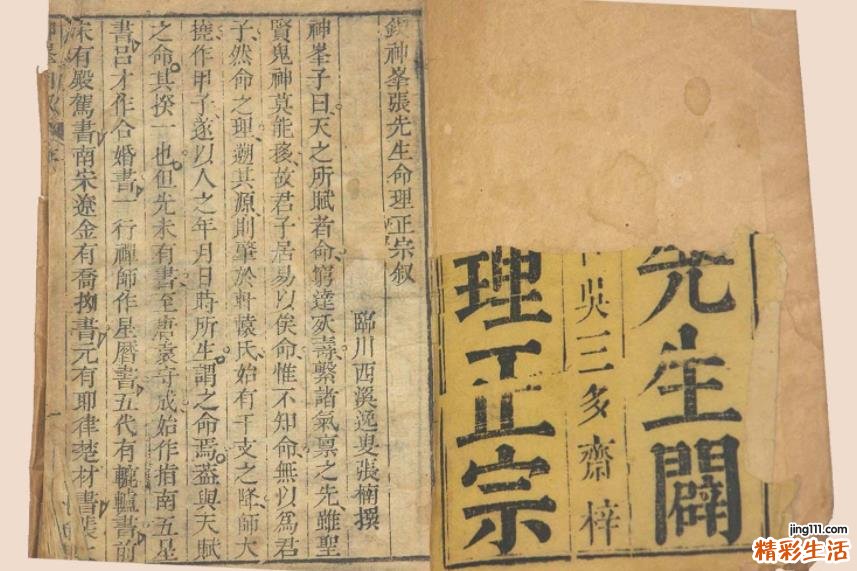 先生闢
吳三多齋梓
理正宗
神峯張先生命理正宗叙
臨川西溪逸叟張楠撰
神峯子曰天之所賦者命窮達殀壽繫諸氣禀之先雖聖
賢鬼神莫能移故君子居易以俟命惟不知命無以爲君
子然命之理遡其源則肇於軒轅氏始有干支之降師大
撓作甲子遂以人之年月日時所生謂之命焉葢與天賦
之命其揆一也但先未有書至唐袁守成始作指南五星
書呂才作合婚書一行禪師作星曆書五代有轆轤書前
宋有殿駕書南宋遼金有喬拗書元有耶律楚材書
jing111.com
精彩生活